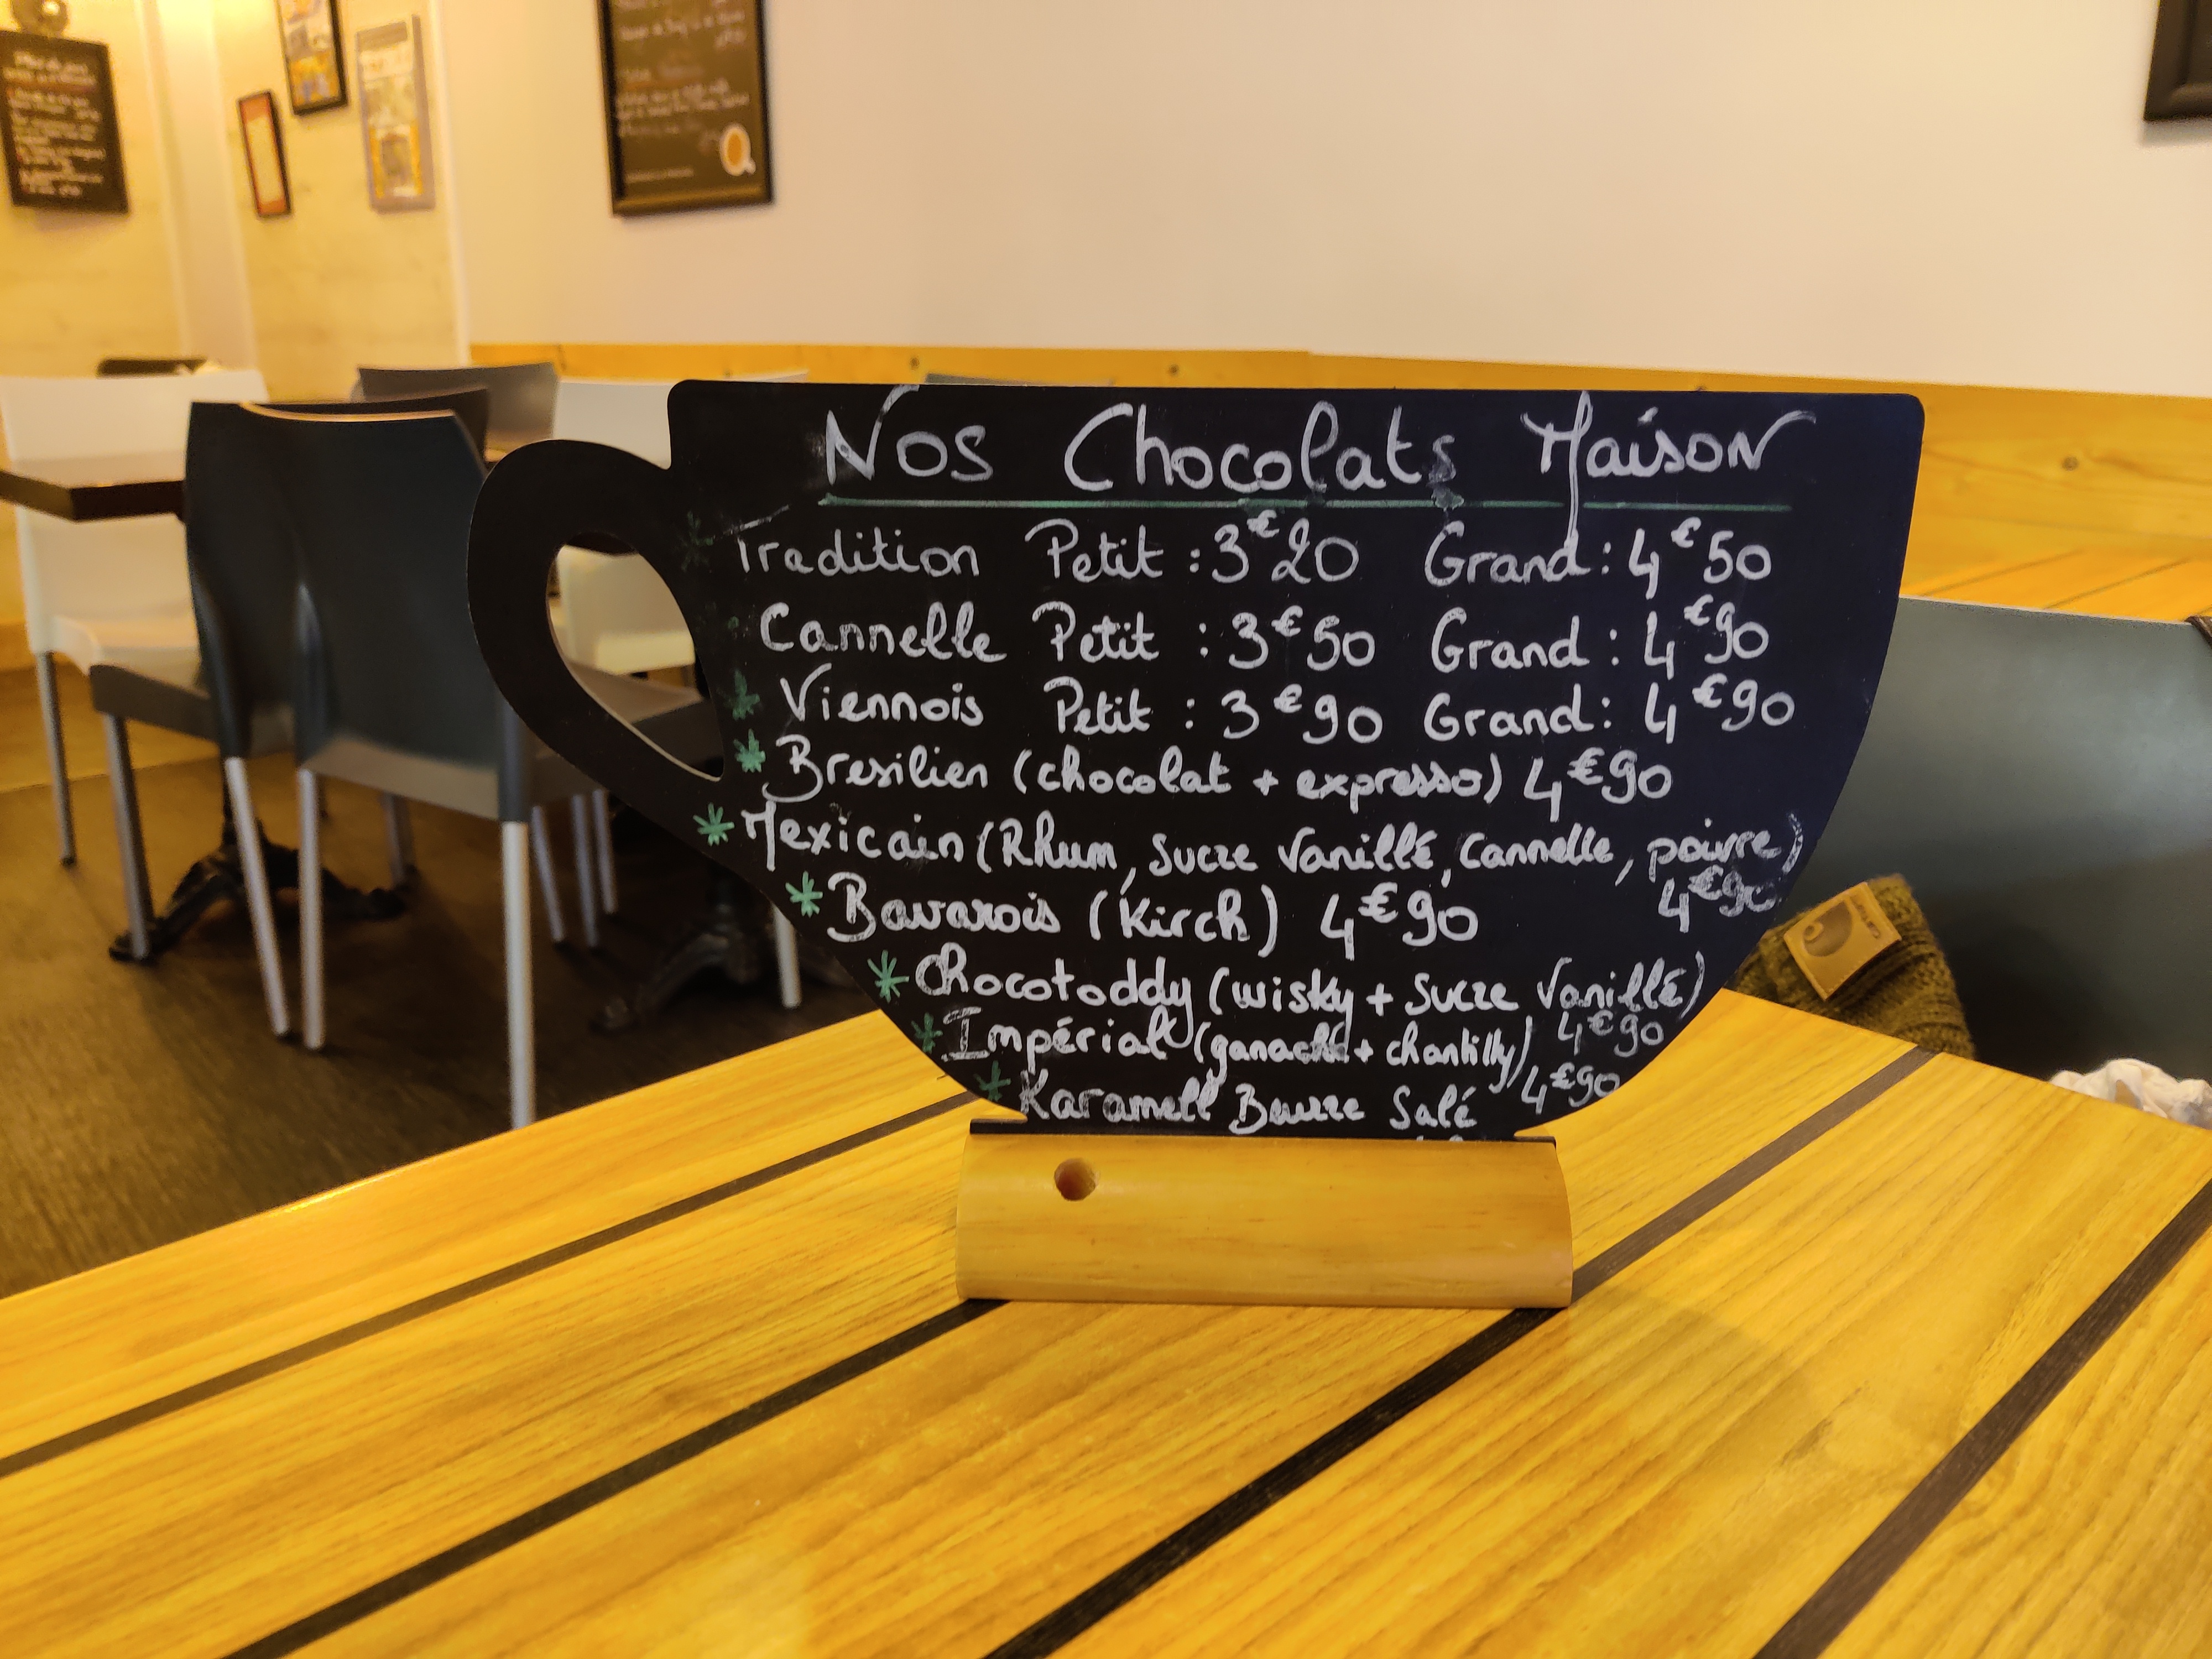 Nos Chocolats Maison
Tradition Petit : 3€20 Grand : 4€50
Cannelle Petit : 3€50 Grand : 4€90
Viennois Petit : 3€90 Grand : 4€90
Bresilien (chocolat + expresso) 4€90
Mexicain (Rhum, sucre vanillé, cannelle, poivre)
4€90
Bavarois (Kirch) 4€90
Chocotoddy (wisky + sucre vanillé)
4€90
Impérial (ganache + chantilly)
4€90
Karamell Beurre Salé